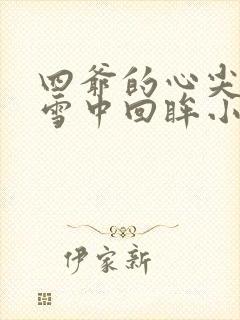 四爷的心尖
雪中回眸小
伊家新